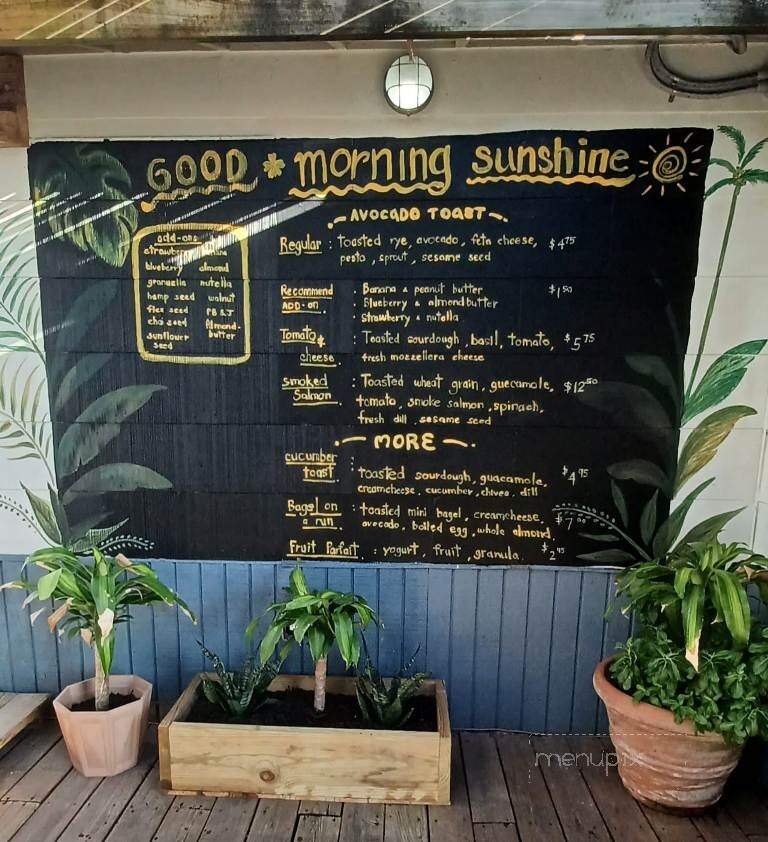 GOOD * morning sunshine
AVOCADO TOAST
add-ons
strawberry banana
blueberry almond
granuella nutella
hemp seed walnut
flex seed PB & J
chai seed Almond-
sunflower butter
seed
Regular : toasted rye, avocado, feta cheese, $4.75
pesto, sprout, sesame seed
Recommend : Banana & peanut butter $1.50
ADD-ON. : Blueberry & almond butter
: Strawberry & nutella
Tomato & : Toasted sourdough, basil, tomato, $5.75
cheese. fresh mozzellera cheese
Smoked : Toasted wheat grain, guecamole, $12.50
Salmon. tomato, smoke salmon, spinach,
fresh dill, sesame seed
MORE
cucumber :
toast. toasted sourdough, guacamole, $4.95
creamcheese, cucumber, chives, dill
Bagel on : toasted mini bagel, creamcheese, $7.00
a run. avocado, boiled egg, whole almond.
Fruit Parfait. : yogurt, fruit, granula. $2.95
menupix